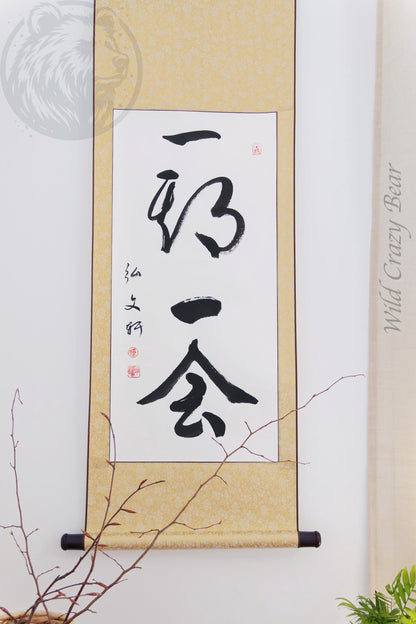 一期一会
弘文
Wild Crazy Bear